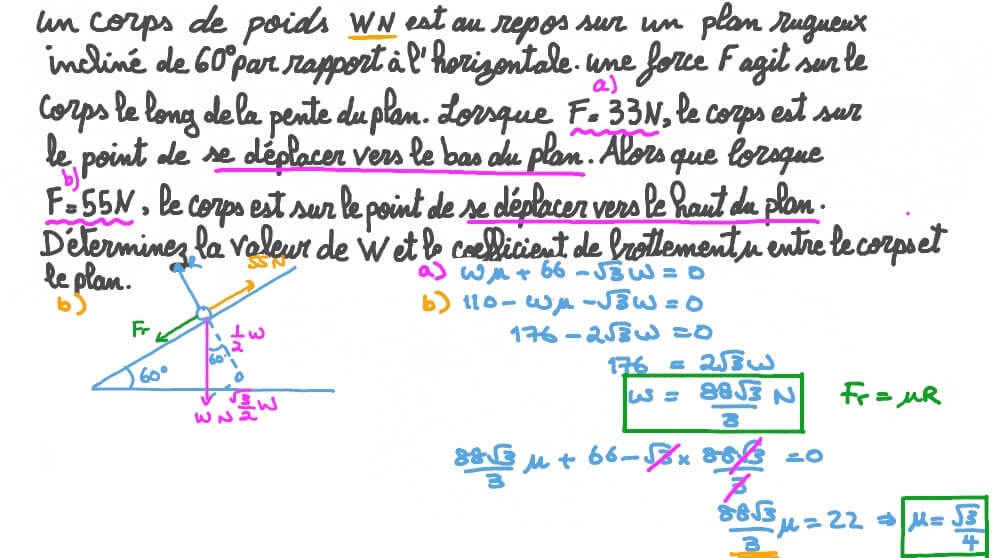 un corps de poids WN est au repos sur un plan rugueux
incliné de 60° par rapport à l'horizontale. une force F agit sur le
a)
corps le long de la pente du plan. Lorsque F= 33N, le corps est sur
le point de se déplacer vers le bas du plan. Alors que lorsque
b)
F=55N, le corps est sur le point de se déplacer vers le haut du plan.
Déterminez la valeur de W et le coefficient de frottement μ entre le corps et
le plan.
b)
R
55N
Fr
1/2 W
60°
60°
√3/2 W
W N
a) Wμ + 66 - √3W = 0
b) 110 - Wμ - √3W = 0
176 - 2√3W = 0
176 = 2√3W
W = 88√3/3 N
Fr = μR
88√3/3 μ + 66 - √3 × 88√3/3 = 0
88√3/3 μ = 22 ⇒ μ = √3/4